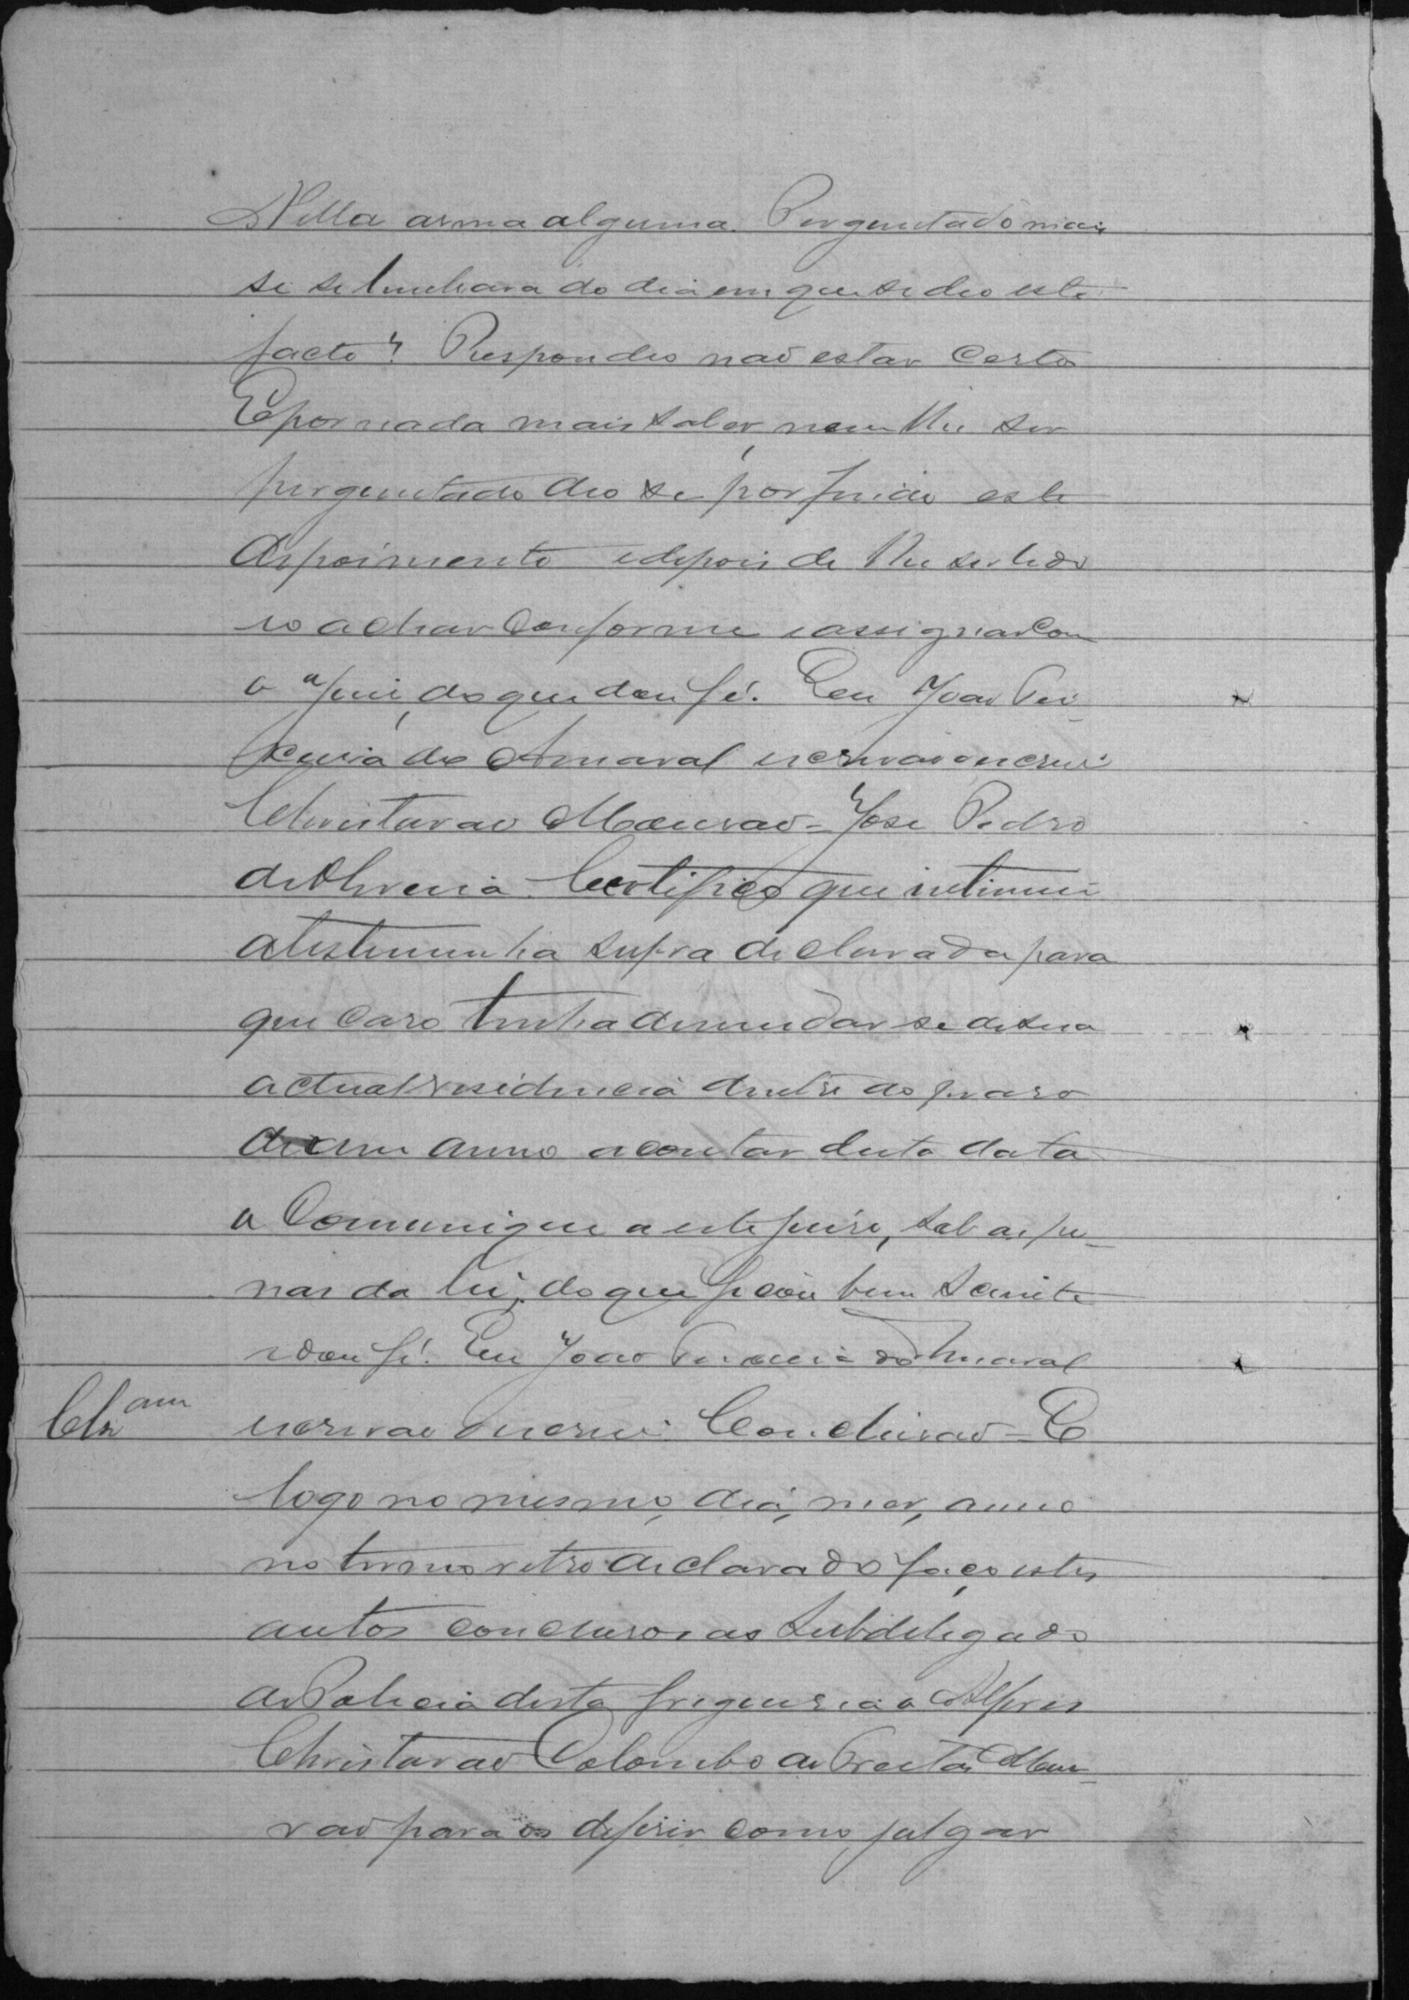 Nella arma alguma. Perguntado mais
se se lembrava do dia em que se deo este
facto? Respondeo não estar certo
E por nada mais saber, nem lhe ser
perguntado deo se por findo este
depoimento e depois de lhe ser lido
eo achar conforme e assignar com
o Juiz, do que dou fé. Eu João Pe-
reira do Amaral escrivão o escrevi
Christovão Mourão = José Pedro
de Oliveira. Certifico que intimei
a testemunha supra declarada para
que caso tenha de mudar se de sua
actual residencia dentro do praso
de um anno a contar desta data
o Communique a este juiso, sob as pe-
nas da lei, do que ficou bem sciente
e dou fé. Eu João Pereira do Amaral
Clsam
escrivão o escrevi. Conclusão = E
logo no mesmo, dia, mez, anno
no termo retro declarado faço estes
autos conclusos ao Subdelegado
de Policia desta freguesia o Alferes
Christovão Colombo de Freitas Mou-
rão para os deferir como julgar